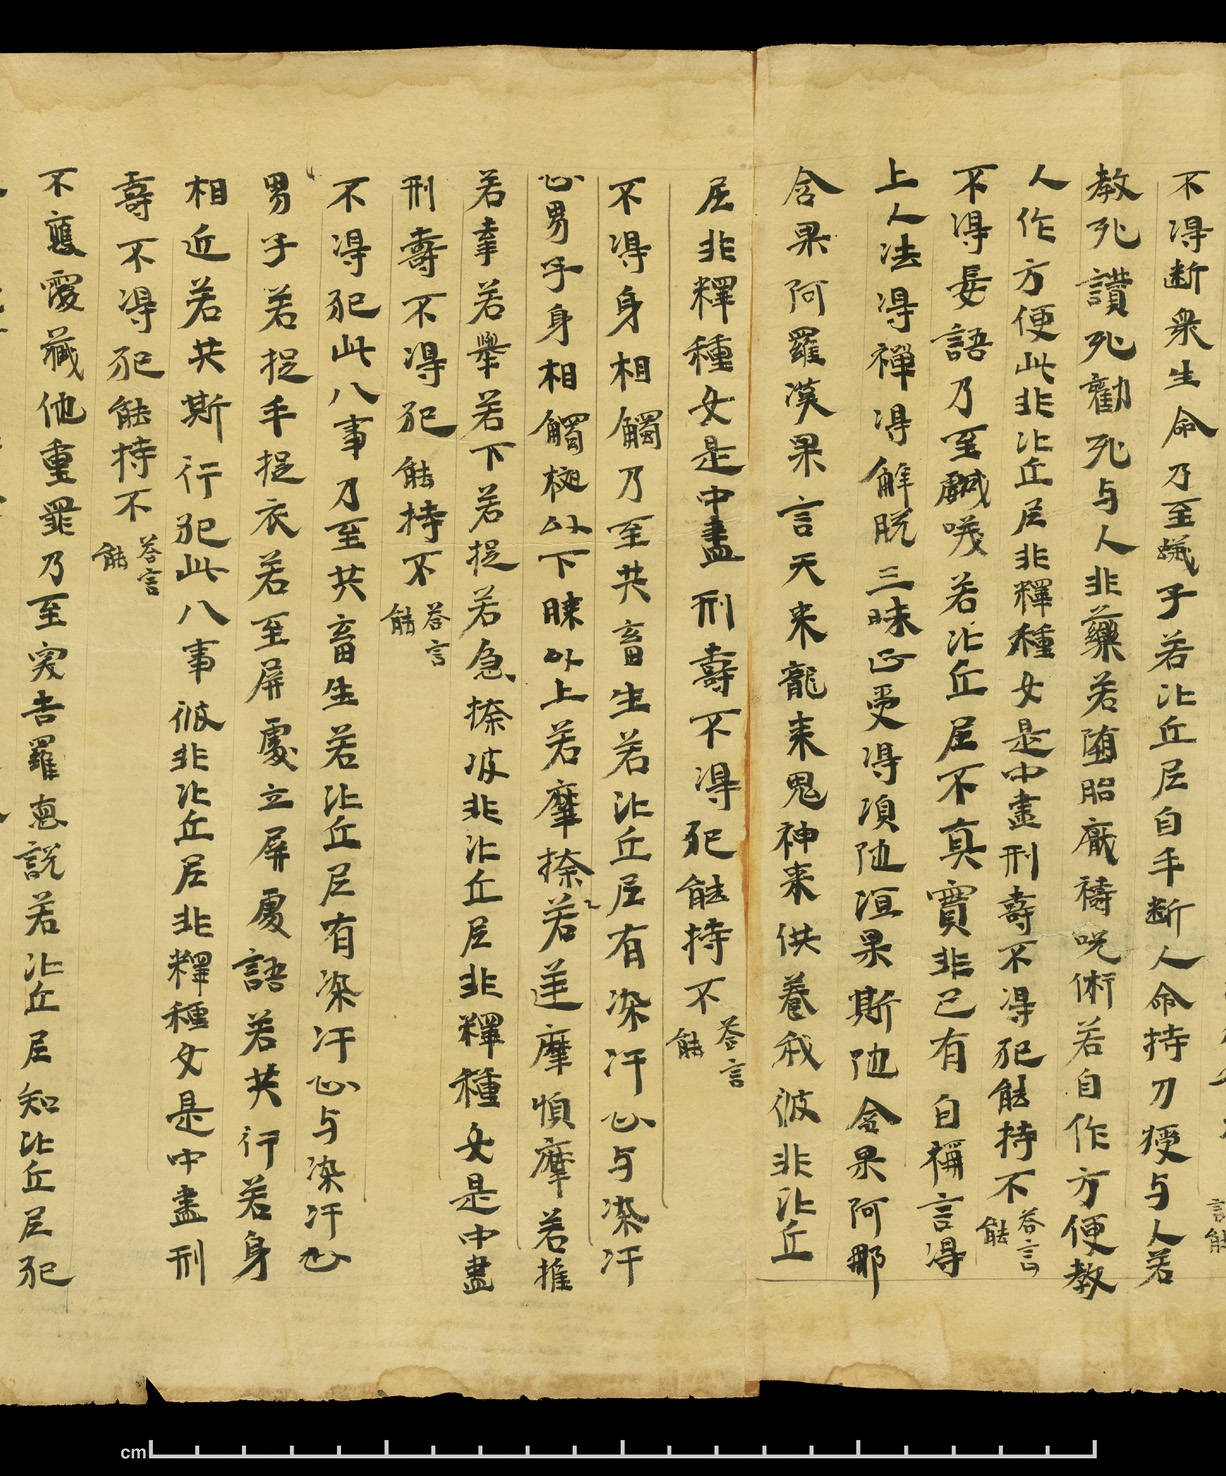 不得断衆生命乃至蟻子若比丘尼自手断人命持刀授与人若
教死讃死勸死与人非藥若堕胎厭禱呪術若自作方便教
人作方便此非比丘尼非釋種女是中盡刑壽不得犯能持不荅言能
不得妄語乃至戲咲若比丘尼不真實非已有自稱言得
上人法得禪得解脱三昧正受得湏陁洹果斯陁含果阿那
含果阿羅漢果言天来龍来鬼神来供養我彼非比丘
尼非釋種女是中盡刑壽不得犯能持不荅言能
不得身相觸乃至共畜生若比丘尼有染汙心与染汙
心男子身相觸掖以下膝以上若摩捺若逆摩順摩若推
若牽若舉若下若捉若急捺彼非比丘尼非釋種女是中盡
刑壽不得犯能持不荅言能
不得犯此八事乃至共畜生若比丘尼有染汙心与染汙心
男子若捉手捉衣若至屏處立屏處語若共行若身
相近若共斯行犯此八事彼非比丘尼非釋種女是中盡刑
壽不得犯能持不荅言能
不覆藏他重罪乃至突吉羅惡説若比丘尼知比丘尼犯